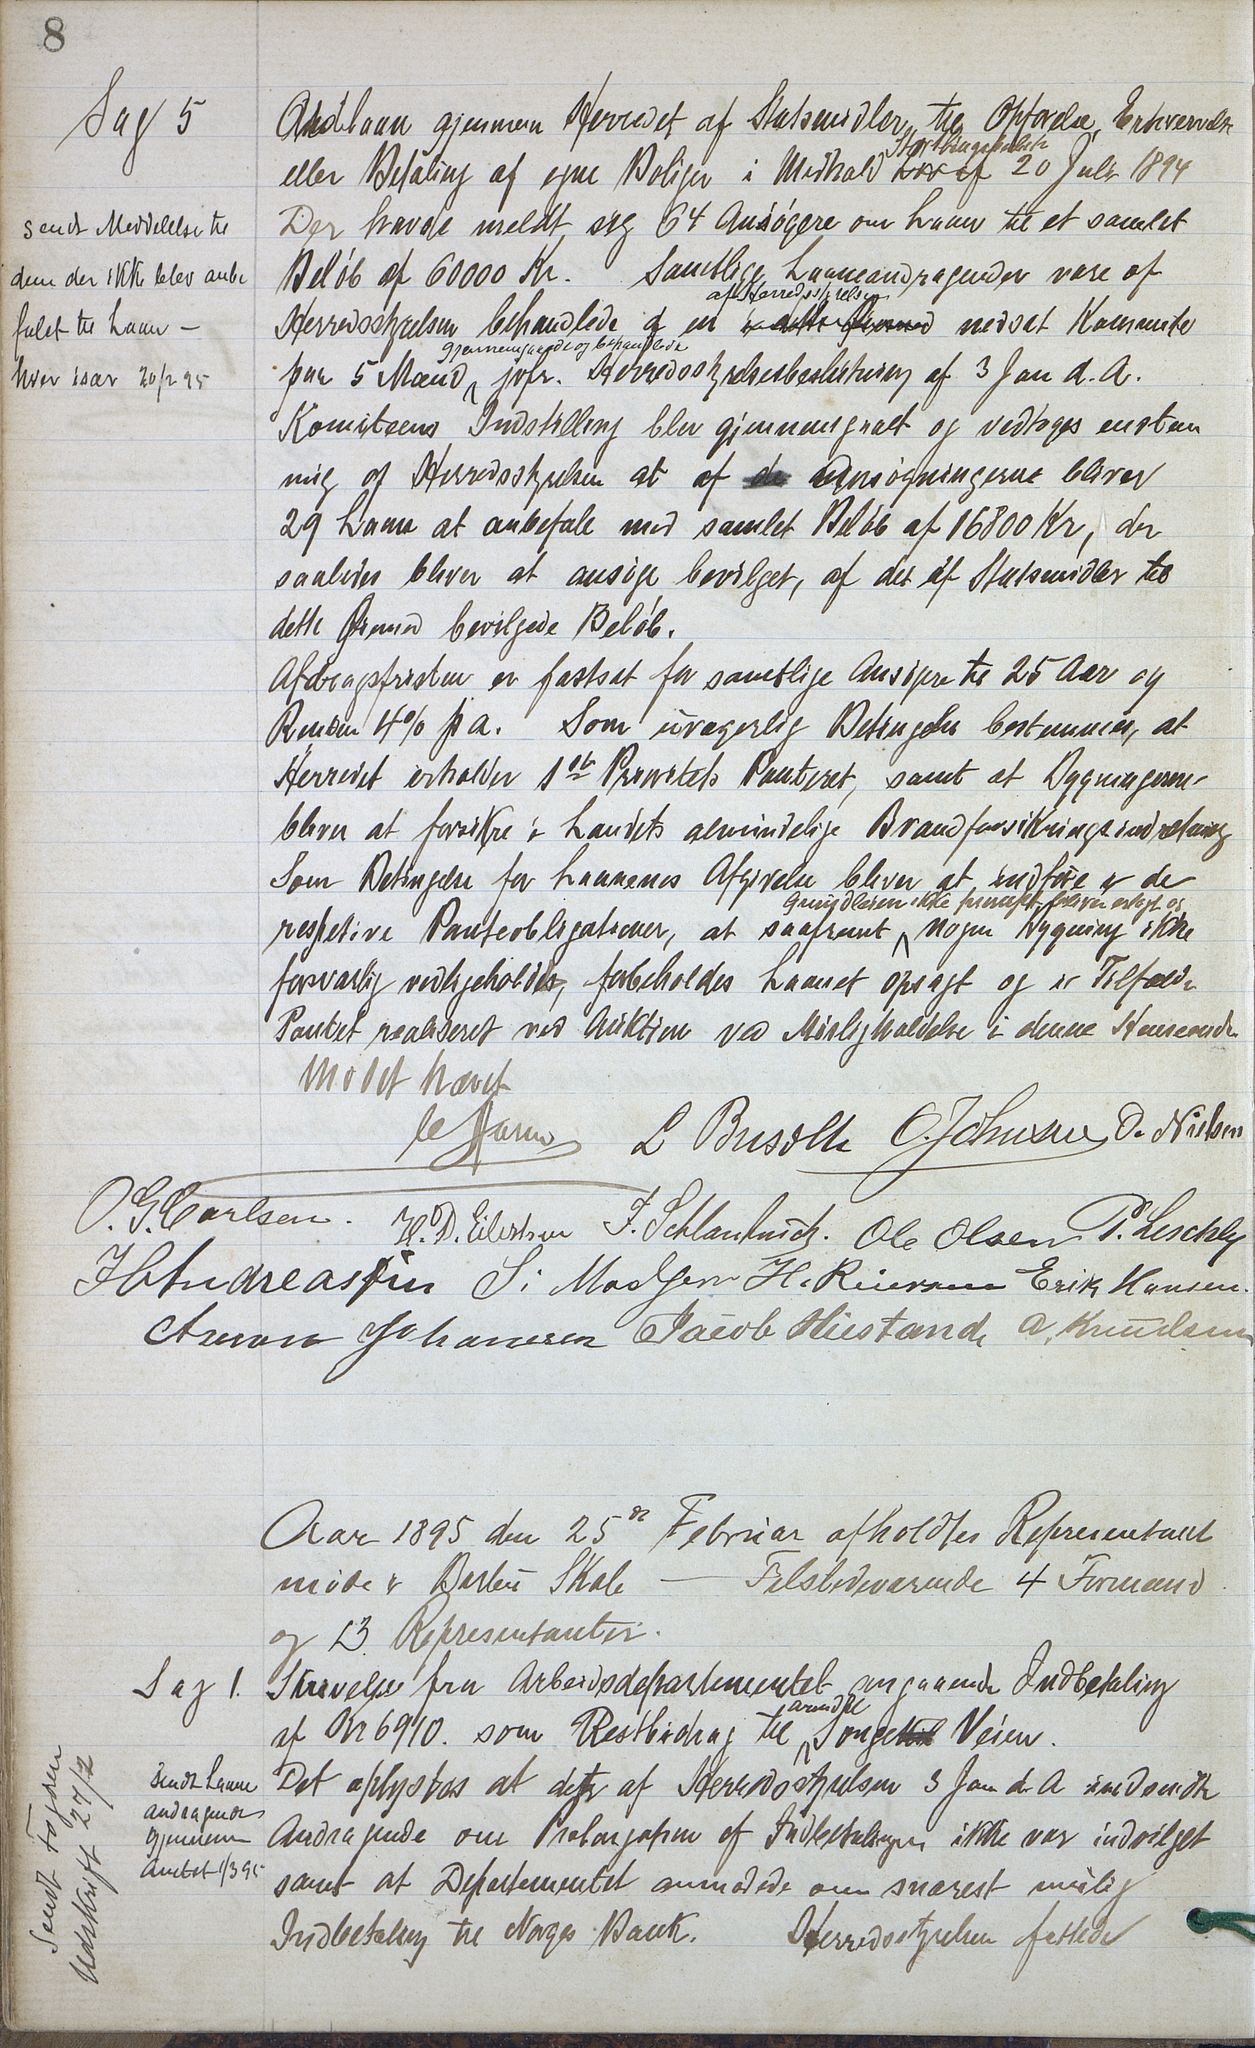 8
Sag 5
Andr. Laan gjennem Herredet af Statsmidler til Opførelse, Erhvervelse
eller Betaling af egne Boliger i Medhold Stortingsbeslut. Lov af 20 Juli 1894
Der havde meldt sig 64 Ansøgere om Laan til et samlet
Beløb af 60000 Kr. Samtlige Laaneandragender vare af
Herredsstyrelsen behandlede og en af Herredsstyrelsen i dette Øiemed nedsat Kommite
paa 5 Mænd gjennemgaaede og behandlede, jvfr. Herredsstyrelsesbeslutning af 3 Jan d. A.
Komiteens Indstilling blev gjennemgaaet og vedtoges enstem
mig af Herredsstyrelsen at af de Ansøgningerne bliver
29 Laan at anbefale med samlet Beløb af 16800 Kr, der
saaledes bliver at ansøge bevilget, af det af Statsmidler til
dette Øiemed bevilgede Beløb.
Afdragsfristen er fastsat for samtlige Ansøgere til 25 Aar og
Renten 4% p a. Som uvægerlig Betingelse bestemmes, at
Herredet erholder 1ste Prioritets Panteret, samt at Bygningerne
bliver at forsikre i Landets almindelige Brandforsikringsindretning
Som Betingelse for Laanenes Afgivelse bliver at indføre i de
respetive Panteobligationer, at saafremt Grundleien ikke præcist bliver erlagt og nogen Bygning ikke
forsvarlig vedligeholdes, forbeholdes Laanet opsagt og i Tilfælde
Pantet realiseret ved Auktion ved Misligholdelse i denne Henseende
Mødet hævet
sendt Meddelelse til
dem der ikke blev anbe
falet til Laan –
hver især 20/2 95
L Busoth O. Johnsen D. Nielsen
O. G. Carlsen. H. D. Eilertsen F. Schlanbusch. Ole Olsen P. Leschly
H Andreassen S. Madsen H. Reiersen Erik Hansen.
Aanon Johansen Jacob Hiestand A. Knudsen
Aar 1895 den 25de Februar afholdtes Representant
møde i Barbu Skole — Tilstedeværende 4 Formænd
og 13 Representanter.
Sag 1.
Skrivelse fra Arbeidsdepartementet angaaende Indbetaling
af Kr 6910. som Restbidrag til Arendal Songe Veien.
Det oplystes at det af Herredsstyrelsen 3 Jan d. A indsendte
Andragende om Prolongation af Indbetalingen ikke var indvilget
samt at Departementet anmodede om snarest mulig
Indbetaling til Norges Bank. Herredsstyrelsen fattede
sendt Laane
andragende
gjennem
Amtet 1/3 95
Sendt Fogden
Udskrift 27/2